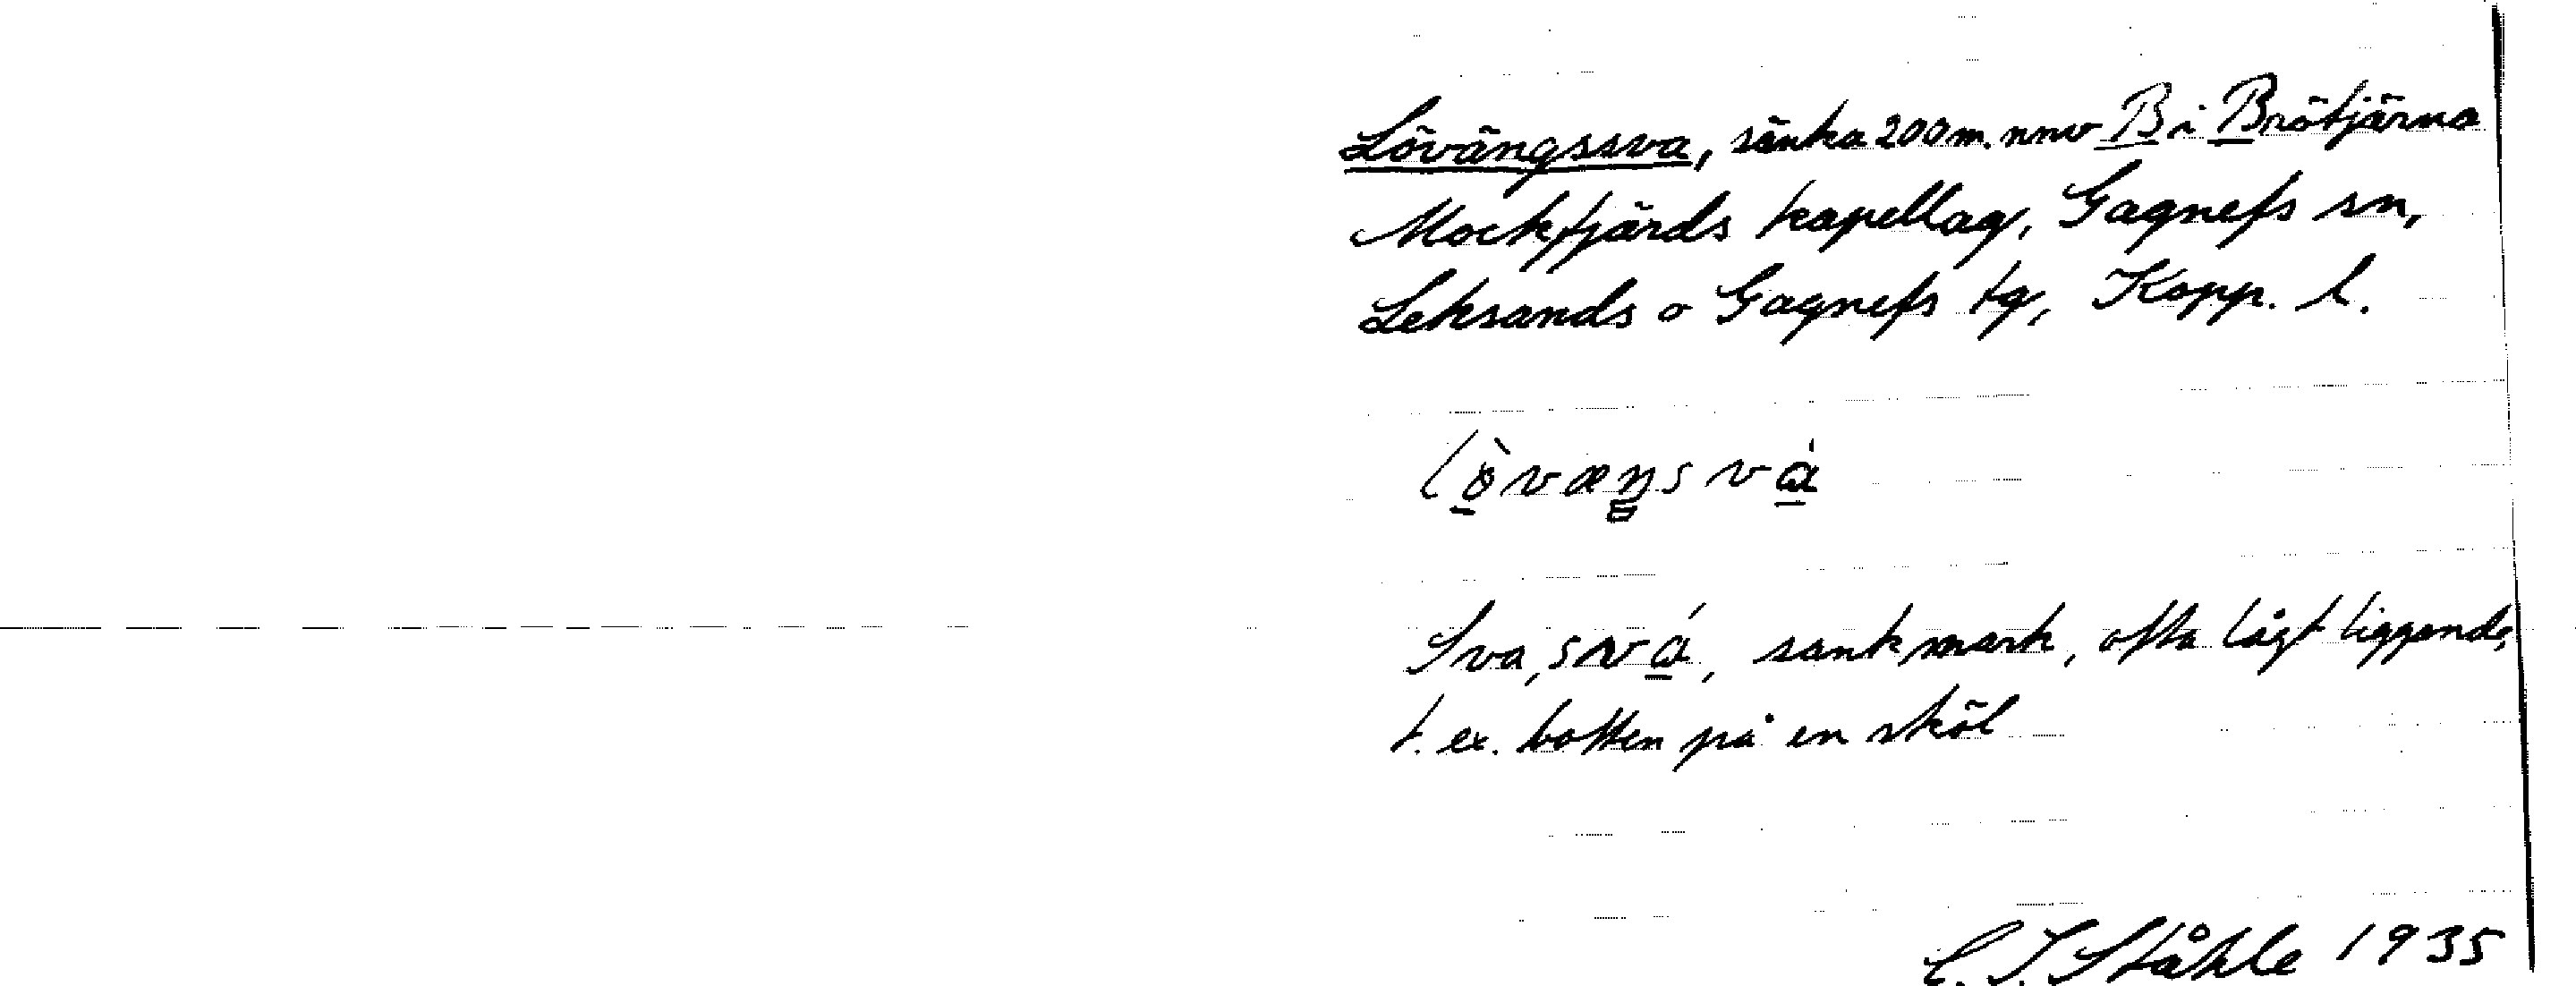 Lövängssva, sänka 200 m. nnv B i Brötjärna
Mockfjärds kapellag, Gagnefs sn,
Leksands o Gagnefs tg, Kopp. l.
lö̀væŋsvá
Sva, svá, sankmark, ofta lågt liggande,
t. ex. botten på en sköl
C. I. Ståhle 1935